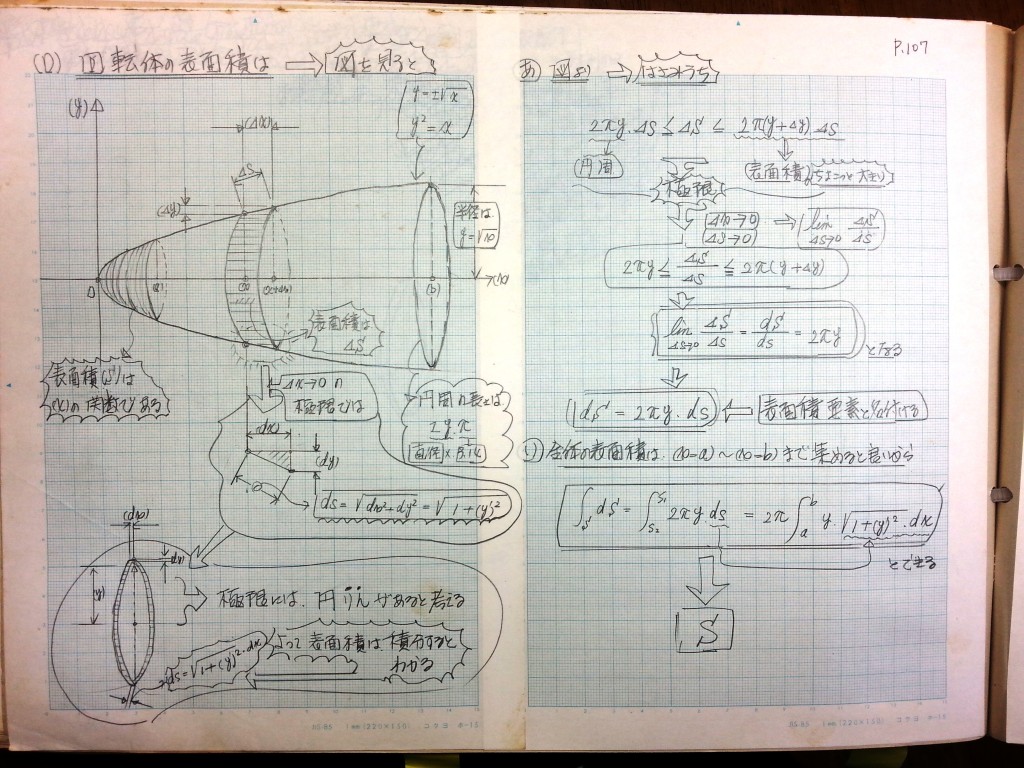 (D) 回転体の表面積は ⇒ 図を見ると
(y)
(Δx)
y=±√x
y²=x
ΔS
(Δy)
半径は
y=√x
(x)
0
(a)
(x)
(x+Δx)
(b)
表面積は
ΔS
表面積(S)は
(x)の関数である
Δx→0の
極限では
円周の長さは
2y・π
直径×円周率
(dx)
(dy)
ds=√dx²+dy² = √1+(y')²
(dx)
(dy)
(y)
極限には、円りんがあると考える
ds=√1+(y')²・dx
よって表面積は、積分すると
わかる
P.107
あ) 図より ⇒ はさみうち
2πy・ΔS ≦ ΔS ≦ 2π(y+Δy)・ΔS
円周
表面積 ちょこっと大きい
極限
Δx→0
Δy→0
⇒ lim ΔS→0 ΔS/ΔS
2πy ≦ ΔS/ΔS ≦ 2π(y+Δy)
lim ΔS→0 ΔS/ΔS = dS/ds = 2πy
となる
dS = 2πy・ds ⇐ 表面積要素と名付ける
い) 全体の表面積は、(x=a)〜(x=b)まで集めると良いから
∫s dS = ∫ 2πy・ds = 2π∫a b y・√1+(y')²・dx
とできる
S